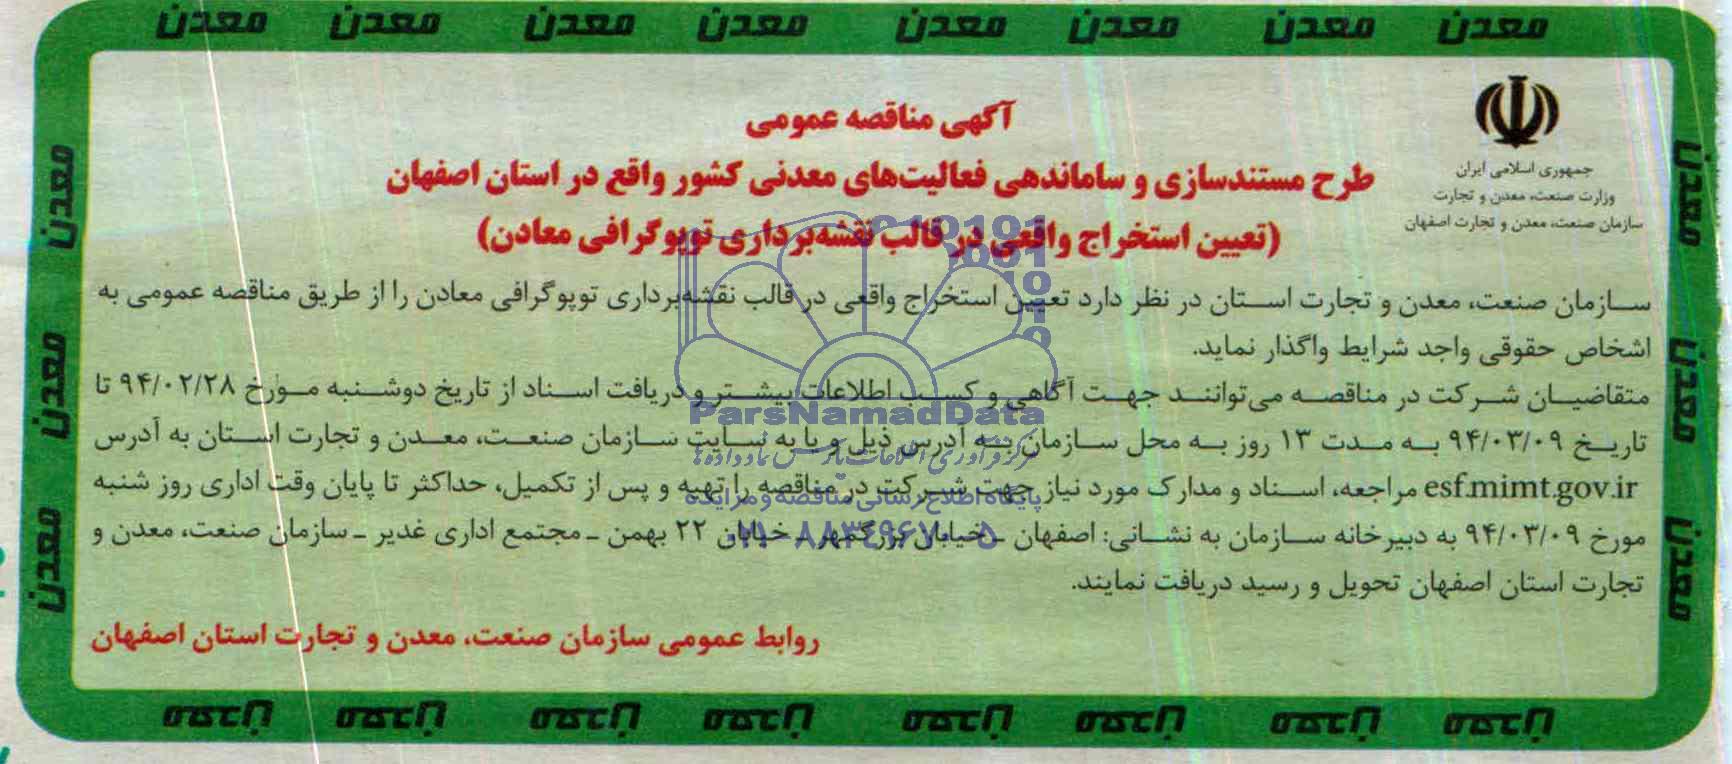 معدن معدن معدن معدن معدن معدن معدن معدن
جمهوری اسلامی ایران
وزارت صنعت، معدن و تجارت
سازمان صنعت، معدن و تجارت اصفهان
آگهی مناقصه عمومی
طرح مستندسازی و ساماندهی فعالیت‌های معدنی کشور واقع در استان اصفهان
(تعیین استخراج واقعی در قالب نقشه‌برداری توپوگرافی معادن)
سازمان صنعت، معدن و تجارت استان در نظر دارد تعیین استخراج واقعی در قالب نقشه‌برداری توپوگرافی معادن را از طریق مناقصه عمومی به
اشخاص حقوقی واجد شرایط واگذار نماید.
متقاضیان شرکت در مناقصه می‌توانند جهت آگاهی و کسب اطلاعات بیشتر و دریافت اسناد از تاریخ دوشنبه مورخ ۹۴/۰۲/۲۸ تا
تاریخ ۹۴/۰۳/۰۹ به مدت ۱۳ روز به محل سازمان به آدرس ذیل و یا به سایت سازمان صنعت، معدن و تجارت استان به آدرس
esf.mimt.gov.ir مراجعه، اسناد و مدارک مورد نیاز جهت شرکت در مناقصه را تهیه و پس از تکمیل، حداکثر تا پایان وقت اداری روز شنبه
مورخ ۹۴/۰۳/۰۹ به دبیرخانه سازمان به نشانی: اصفهان ـ خیابان بزرگمهر ـ خیابان ۲۲ بهمن ـ مجتمع اداری غدیر ـ سازمان صنعت، معدن و
تجارت استان اصفهان تحویل و رسید دریافت نمایند.
روابط عمومی سازمان صنعت، معدن و تجارت استان اصفهان
ParsNamadData
مرکز فرآوری اطلاعات پارس نماد داده‌ها
پایگاه اطلاع رسانی مناقصه و مزایده
۰۲۱-۸۸۳۴۹۶۷۰-۵
معدن معدن معدن
معدن معدن معدن
معدن معدن معدن معدن معدن معدن معدن معدن